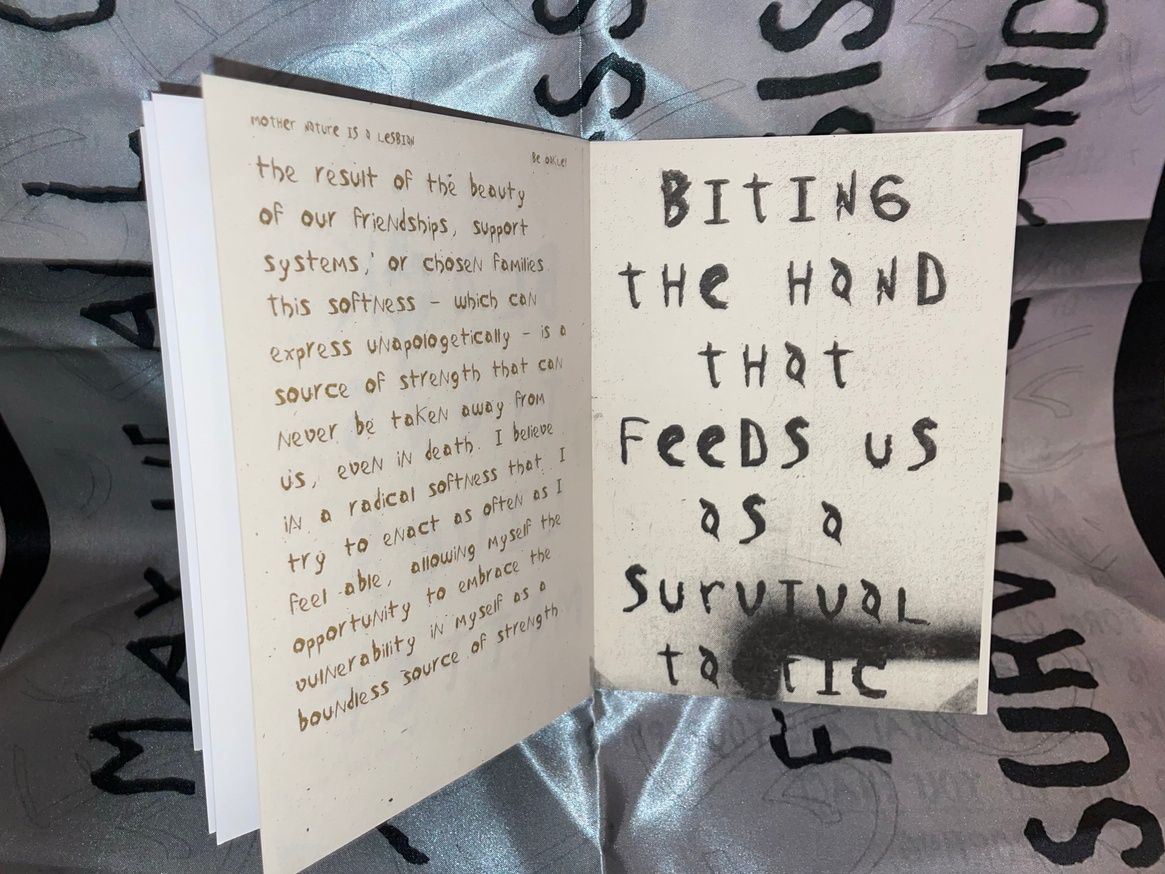 MOTHER NATURE IS A LESBIAN
Be
the result of the beauty
of our friendships, support
systems, or chosen families
this softness – which can
express unapologetically – is a
source of strength that can
never be taken away from
us, even in death. I believe
in a radical softness that I
try to enact as often as I
feel able, allowing myself the
opportunity to embrace the
vulnerability in myself as a
boundless source of strength
BITING
tHe HAND
tHat
FeeDS uS
aS a
SurVIVaL
taCTIC
MAY
SURV